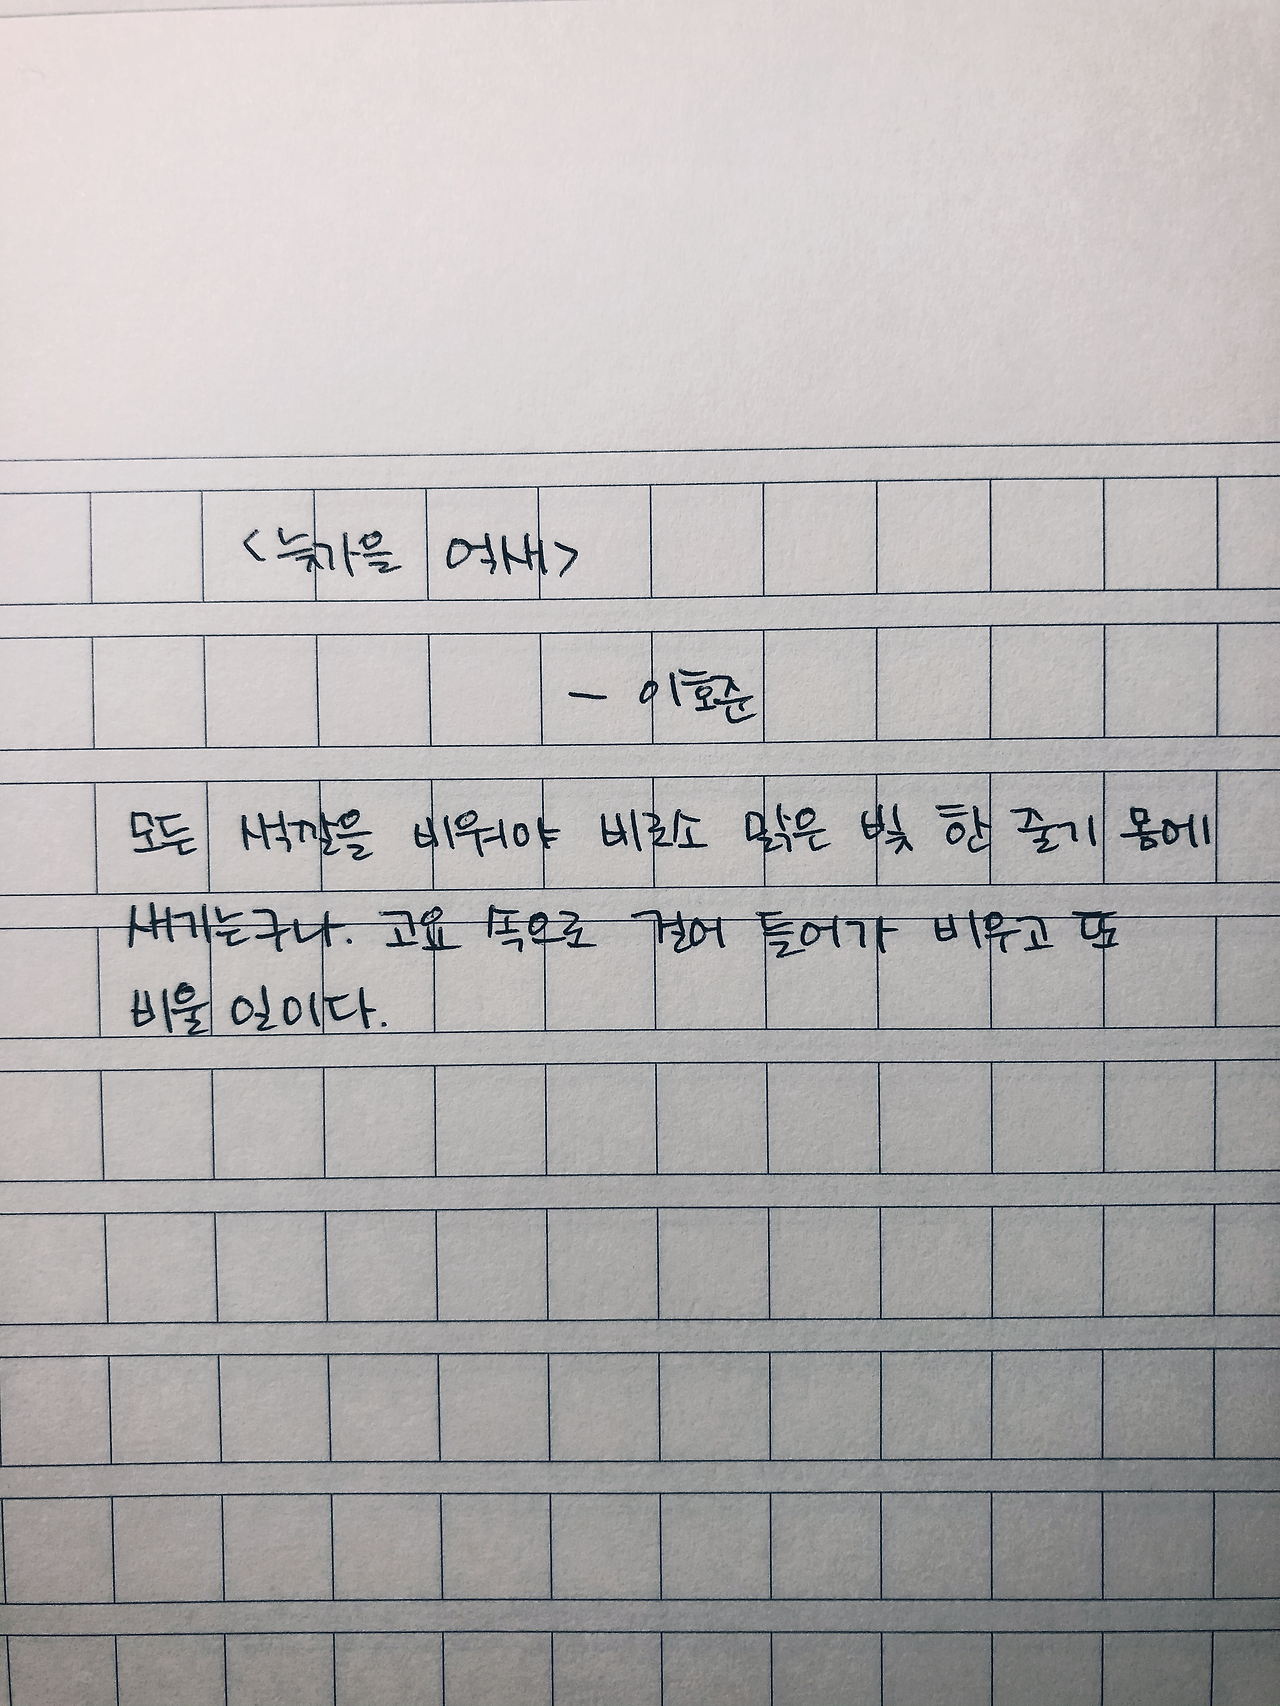 <늦가을 억새>
- 이호준
모든 색깔을 비워야 비로소 맑은 빛 한 줄기 몸에
새기는구나. 고요 속으로 걸어 들어가 비우고 또
비울 일이다.